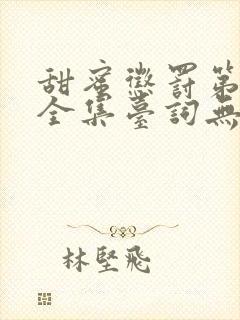 甜蜜懲罰第
全集臺詞無
林堅飛